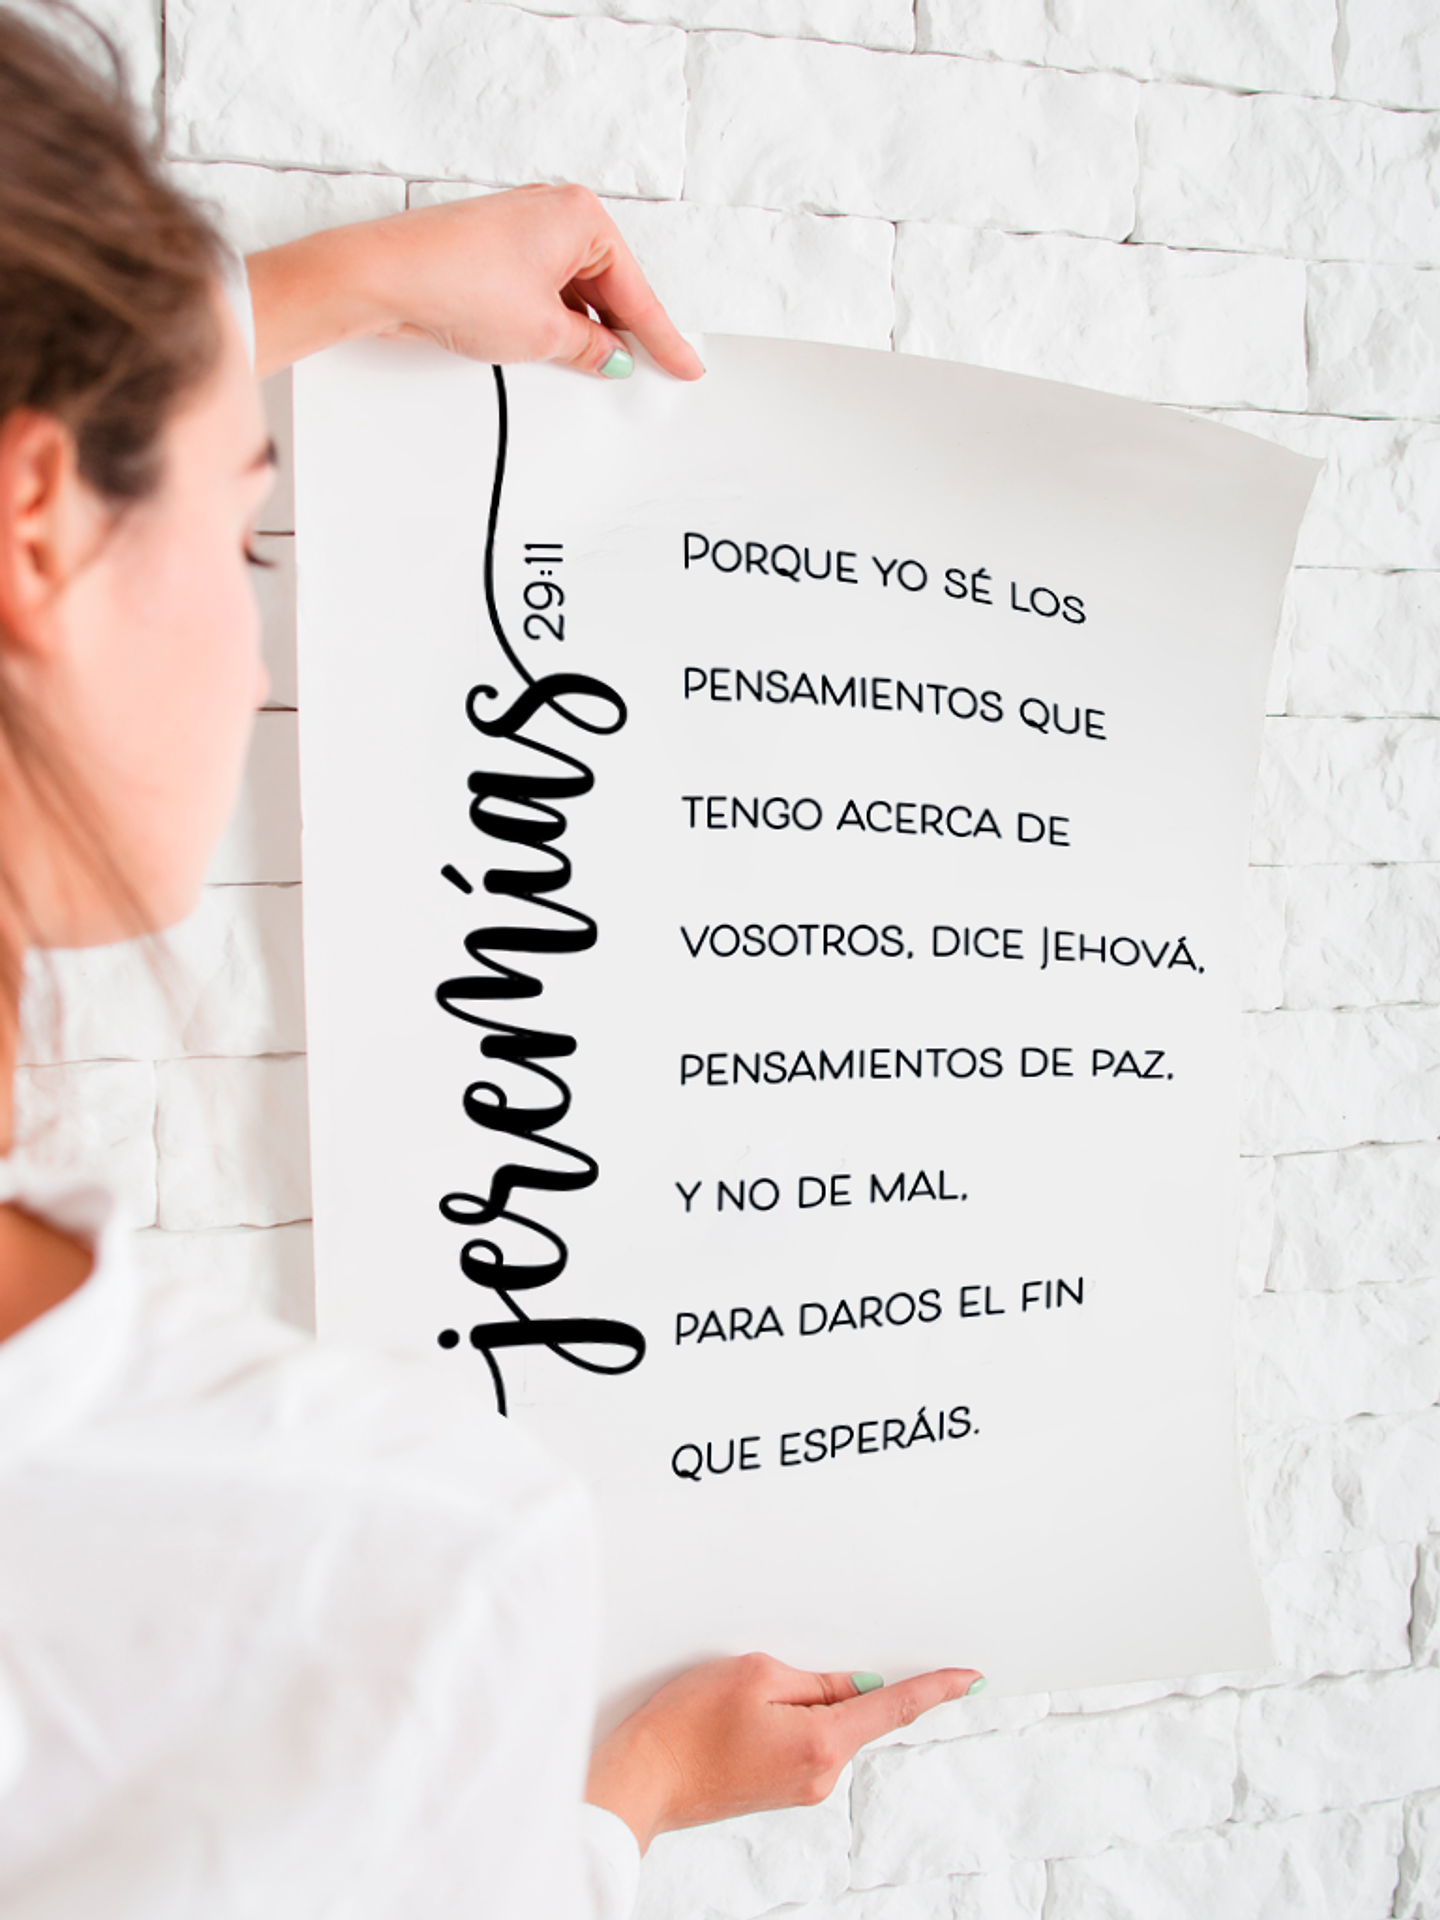 jeremías
29:11
PORQUE YO SÉ LOS
PENSAMIENTOS QUE
TENGO ACERCA DE
VOSOTROS, DICE JEHOVÁ,
PENSAMIENTOS DE PAZ,
Y NO DE MAL,
PARA DAROS EL FIN
QUE ESPERÁIS.